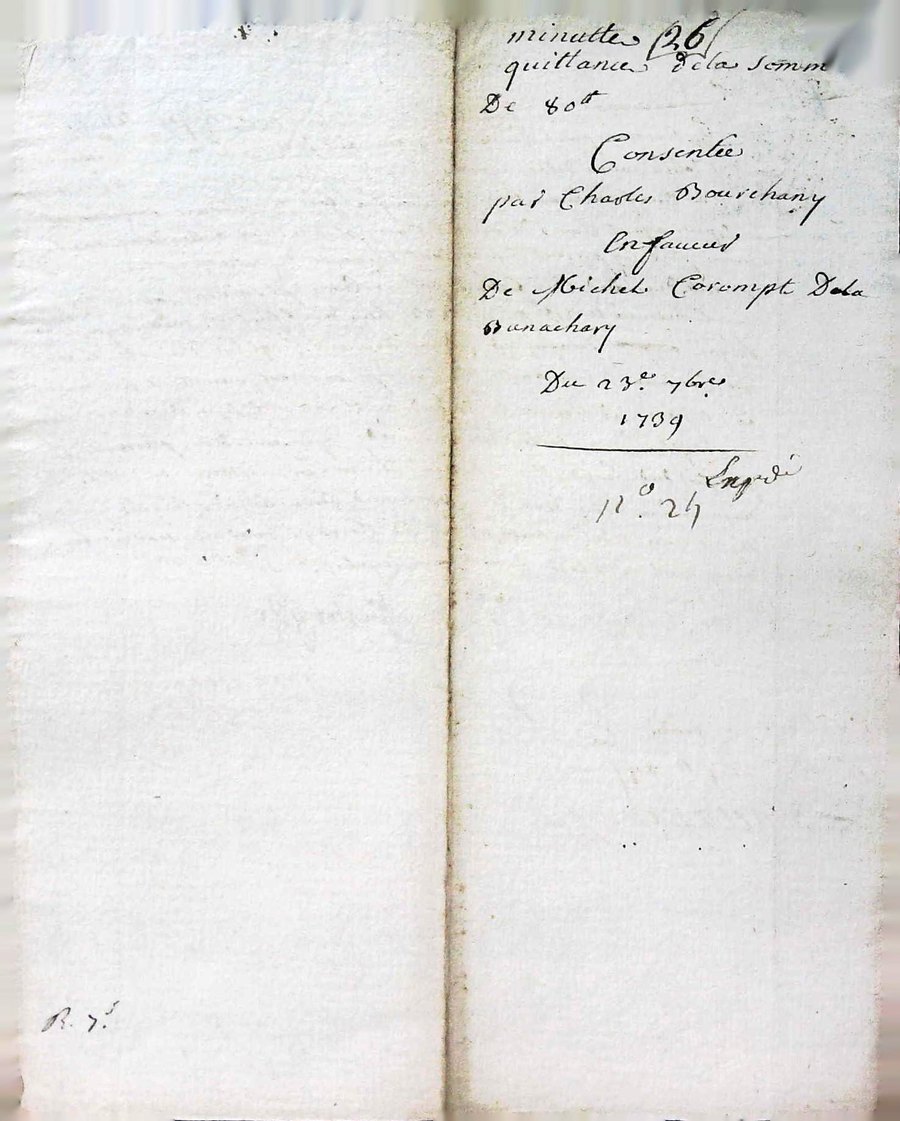 minutte 26
quittance dela somm
De 80tt
Consentée
par Charles Bourchany
En faueur
De Michel Corompt Dela
Bunachary
Du 23e. 7bre.
1739
no. 25
R. 7s